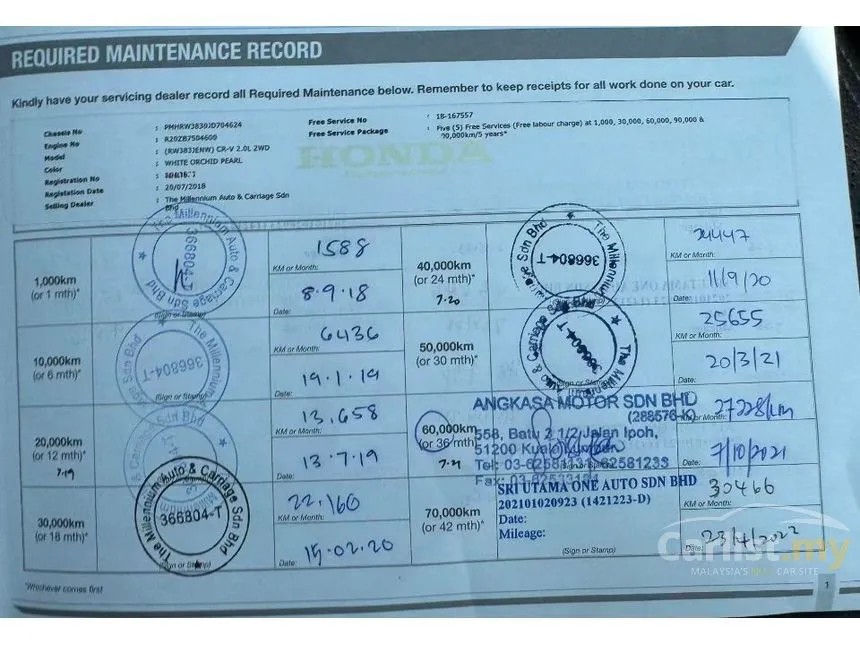 REQUIRED MAINTENANCE RECORD
Kindly have your servicing dealer record all Required Maintenance below. Remember to keep receipts for all work done on your car.
Chassis No : PMHRW3830JD704624
Engine No : R20Z87504600
Model : (RW383JENW) CR-V 2.0L 2WD
Color : WHITE ORCHID PEARL
Registration No :
Registation Date : 20/07/2018
Selling Dealer : The Millennium Auto & Carriage Sdn Bhd
Free Service No : 18-167557
Free Service Package : Five (5) Free Services (Free labour charge) at 1,000, 30,000, 60,000, 90,000 &
km/5 years*
HONDA
1,000km
(or 1 mth)*
The Millennium Auto & Carriage Sdn Bhd
366804-T
(Sign or Stamp)
1588
KM or Month:
8.9.18
Date:
10,000km
(or 6 mth)*
The Millennium
Sdn Bhd
366804-T
(Sign or Stamp)
6436
KM or Month:
19.1.19
Date:
20,000km
(or 12 mth)*
7.19
13,658
KM or Month:
13.7.19
Date:
30,000km
(or 18 mth)*
The Millennium Auto & Carriage Sdn Bhd
366804-T
(Sign or Stamp)
22,160
KM or Month:
15.02.20
Date:
40,000km
(or 24 mth)*
7.20
The Millennium
Sdn Bhd
366804-T
24447
KM or Month:
11/9/20
Date:
50,000km
(or 30 mth)*
& Carriage Sdn Bhd
366804-T
(Sign or Stamp)
25655
KM or Month:
20/3/21
Date:
60,000km
(or 36 mth)*
7.21
ANGKASA MOTOR SDN BHD
(288576-K)
558, Batu 2 1/2 Jalan Ipoh,
51200 Kuala Lumpur.
Tel: 03-62583131 62581233
Fax: 03-62583131
27228km
KM or Month:
7/10/2021
Date:
70,000km
(or 42 mth)*
SRI UTAMA ONE AUTO SDN BHD
202101020923 (1421223-D)
Date:
Mileage:
(Sign or Stamp)
30466
KM or Month:
23/4/2022
Date:
*Whichever comes first
1
Carlist.my
MALAYSIA'S NO.1 CAR SITE